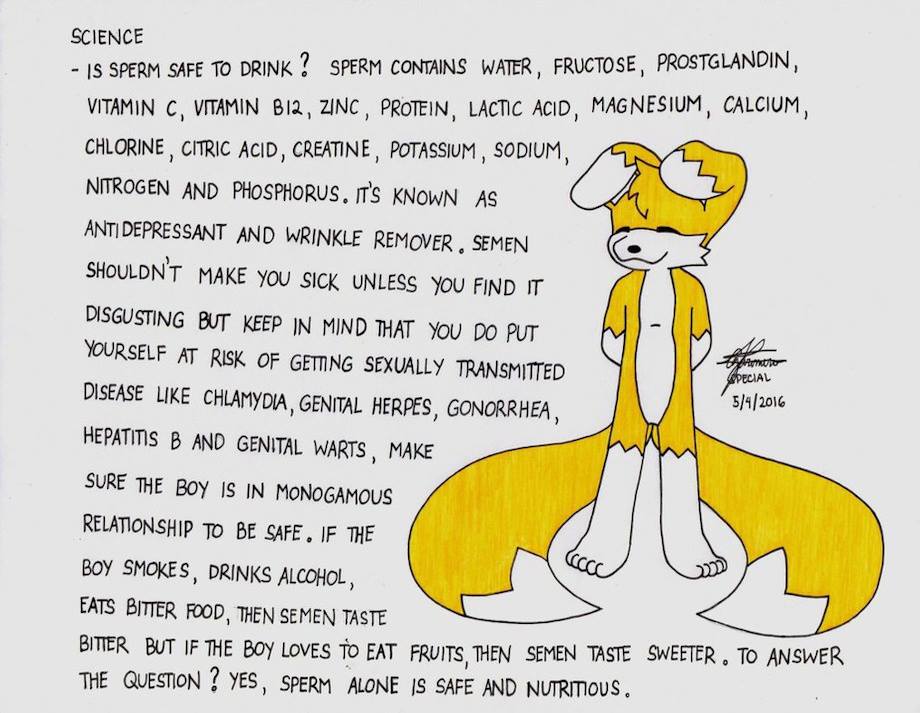 SCIENCE
- IS SPERM SAFE TO DRINK? SPERM CONTAINS WATER, FRUCTOSE, PROSTGLANDIN,
VITAMIN C, VITAMIN B12, ZINC, PROTEIN, LACTIC ACID, MAGNESIUM, CALCIUM,
CHLORINE, CITRIC ACID, CREATINE, POTASSIUM, SODIUM,
NITROGEN AND PHOSPHORUS. IT'S KNOWN AS
ANTIDEPRESSANT AND WRINKLE REMOVER. SEMEN
SHOULDN'T MAKE YOU SICK UNLESS YOU FIND IT
DISGUSTING BUT KEEP IN MIND THAT YOU DO PUT
YOURSELF AT RISK OF GETTING SEXUALLY TRANSMITTED
DISEASE LIKE CHLAMYDIA, GENITAL HERPES, GONORRHEA,
HEPATITIS B AND GENITAL WARTS, MAKE
SURE THE BOY IS IN MONOGAMOUS
RELATIONSHIP TO BE SAFE. IF THE
BOY SMOKES, DRINKS ALCOHOL,
EATS BITTER FOOD, THEN SEMEN TASTE
BITTER BUT IF THE BOY LOVES TO EAT FRUITS, THEN SEMEN TASTE SWEETER. TO ANSWER
THE QUESTION? YES, SPERM ALONE IS SAFE AND NUTRITIOUS.
SPECIAL
5/4/2016